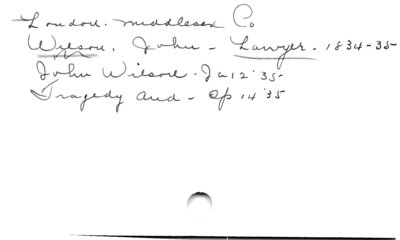 London. Middlesex Co
Wilson, John - Lawyer - 1834-35
John Wilson. Ja 12 '35
Tragedy and - Ap 14 '35